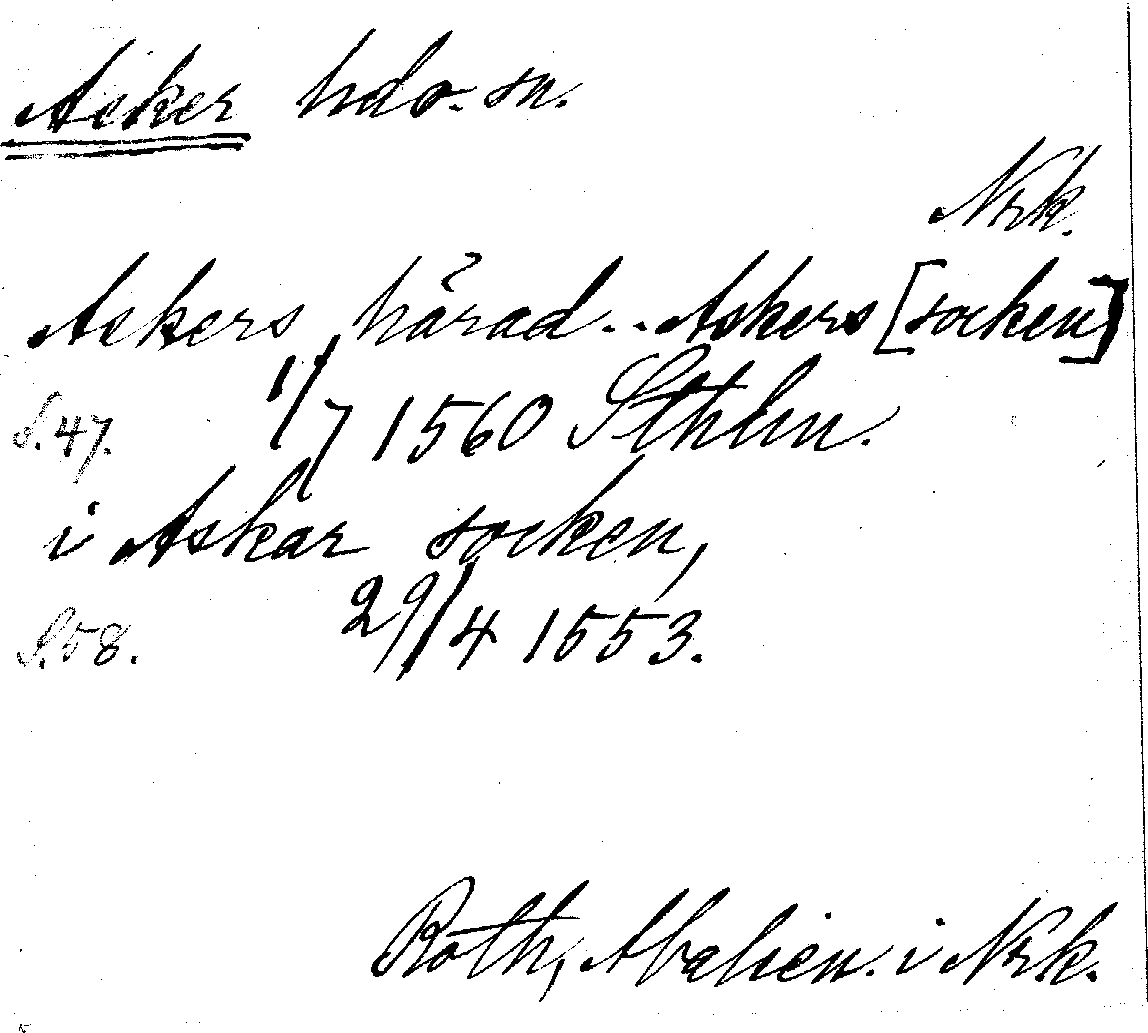 Asker hd o. sn.
Nrk.
Askers härad .. Askers [socken]
S. 47. 1/7 1560 Sthlm.
i Askar socken,
S. 58. 29/4 1553.
Roth, i Nrk.